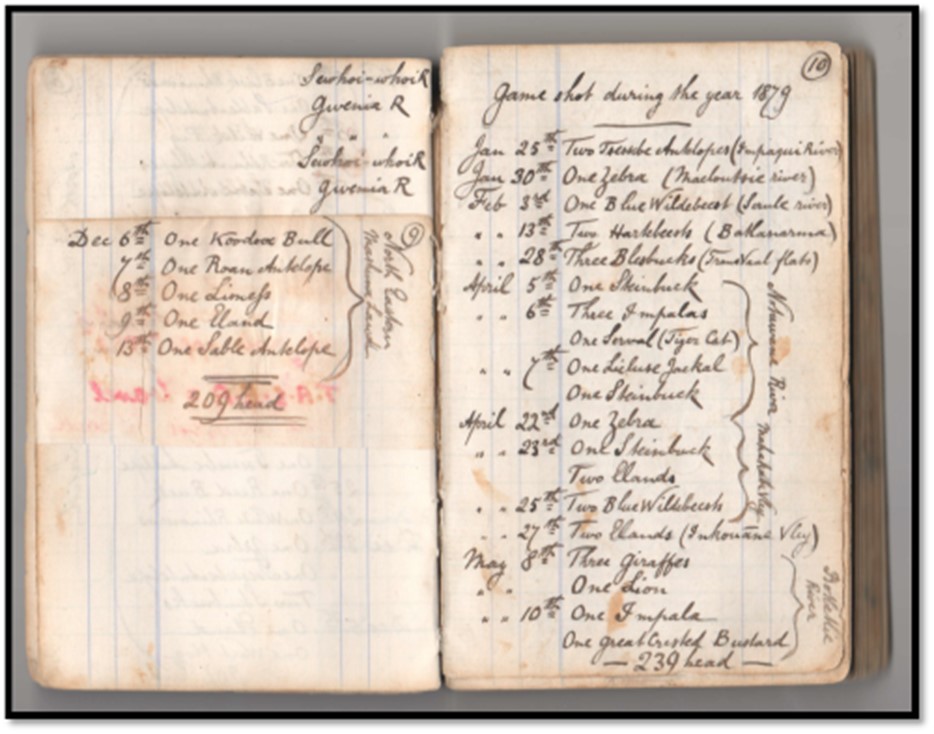 Sewhoi-whoi R
Gwenia R
" " "
Sewhoi-whoi R
Gwenia R
9
Dec 6th One Koodoo Bull
7th One Roan Antelope
8th One Lioness
9th One Eland
13th One Sable Antelope
North Eastern
Mashuna Land
209 head
10
Game shot during the year 1879
Jan 25th Two Tsessbe Antelopes (Impaqui River)
Jan 30th One Zebra (Macloutsie river)
Feb 3rd One Blue Wildebeest (Saule river)
" " 13th Two Hartebeests (Batlanarma)
" " 28th Three Blesbucks (Transvaal flats)
April 5th One Steinbuck
" " 6th Three Impalas
One Serval (Tiger Cat)
" " 7th One Jackal
One Steinbuck
April 22nd One Zebra
" " 23rd One Steinbuck
Two Elands
" " 25th Two Blue Wildebeests
River
" " 27th Two Elands (Inkouane Vley)
May 8th Three Giraffes
" " One Lion
" " 10th One Impala
One great Crested Bustard
River
239 head